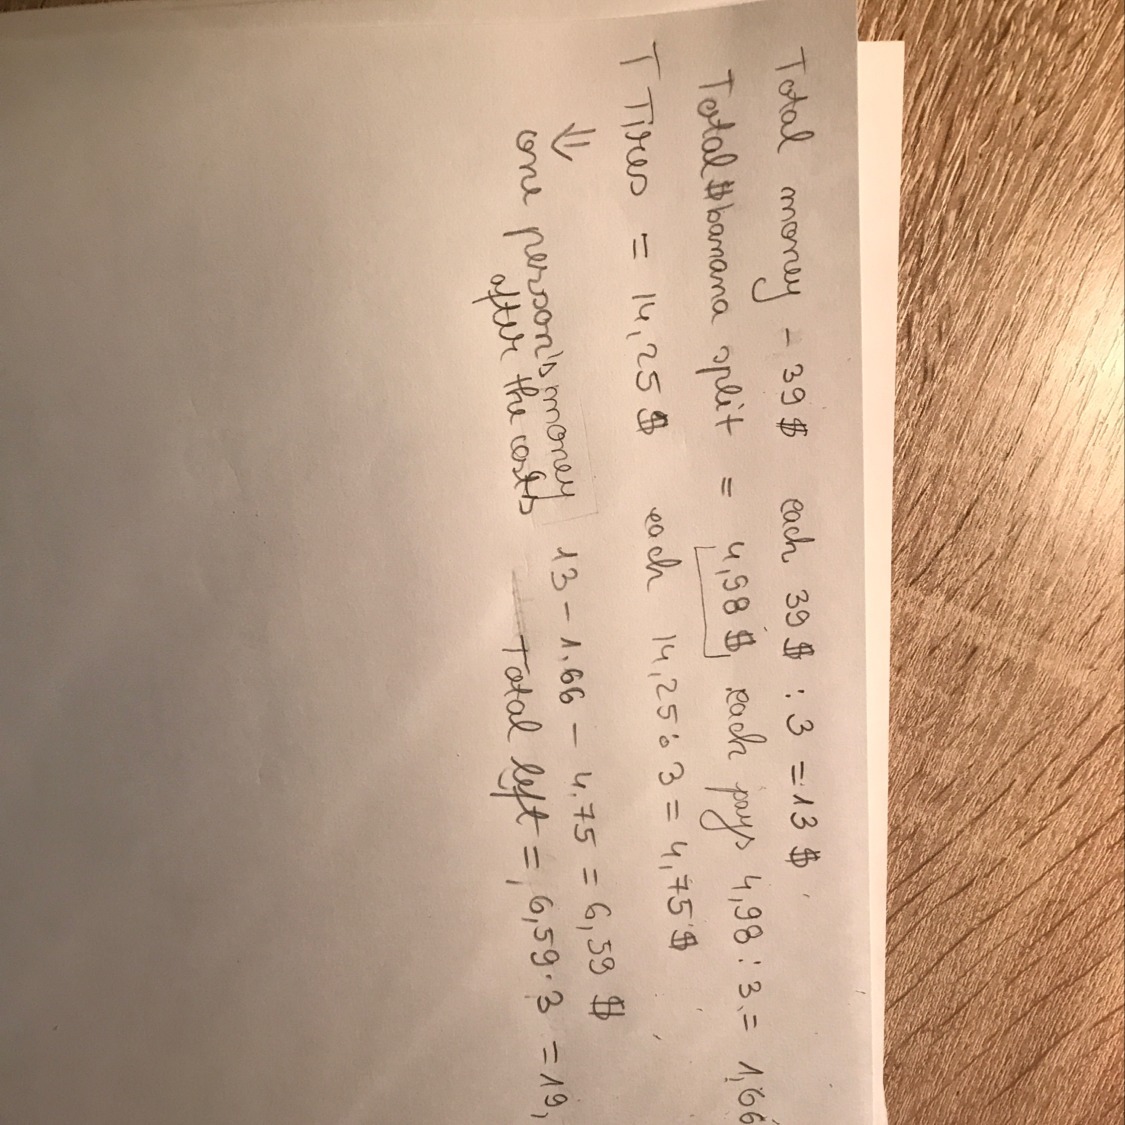 Total money - 39 $ each 39 $ : 3 = 13 $
Total $ banana split = 4,98 $, each pays 4,98 : 3 = 1,66
T Tires = 14,25 $ each 14,25 : 3 = 4,75 $
⇓
one person's money 13 - 1.66 - 4.75 = 6,59 $
after the costs Total left = 6,59 · 3 = 19,